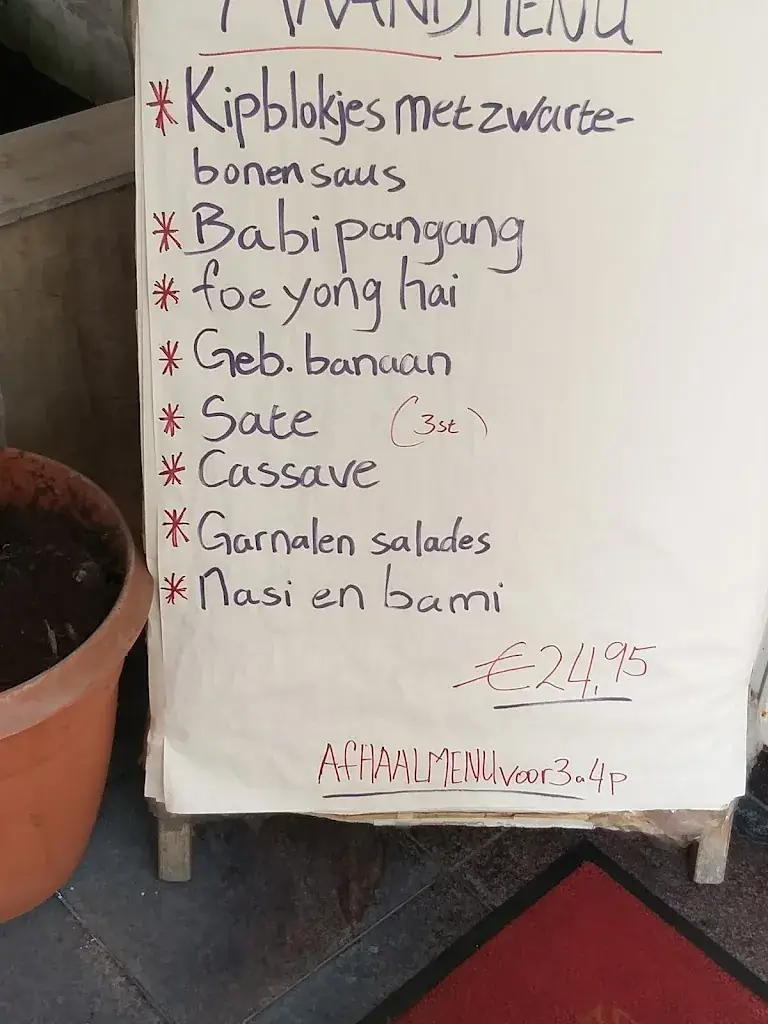 MAANDMENU
* Kipblokjes met zwarte-
bonensaus
* Babi pangang
* foe yong hai
* Geb. banaan
* Sate (3st)
* Cassave
* Garnalen salades
* Nasi en bami
€24,95
AFHAALMENU voor 3 a 4 p